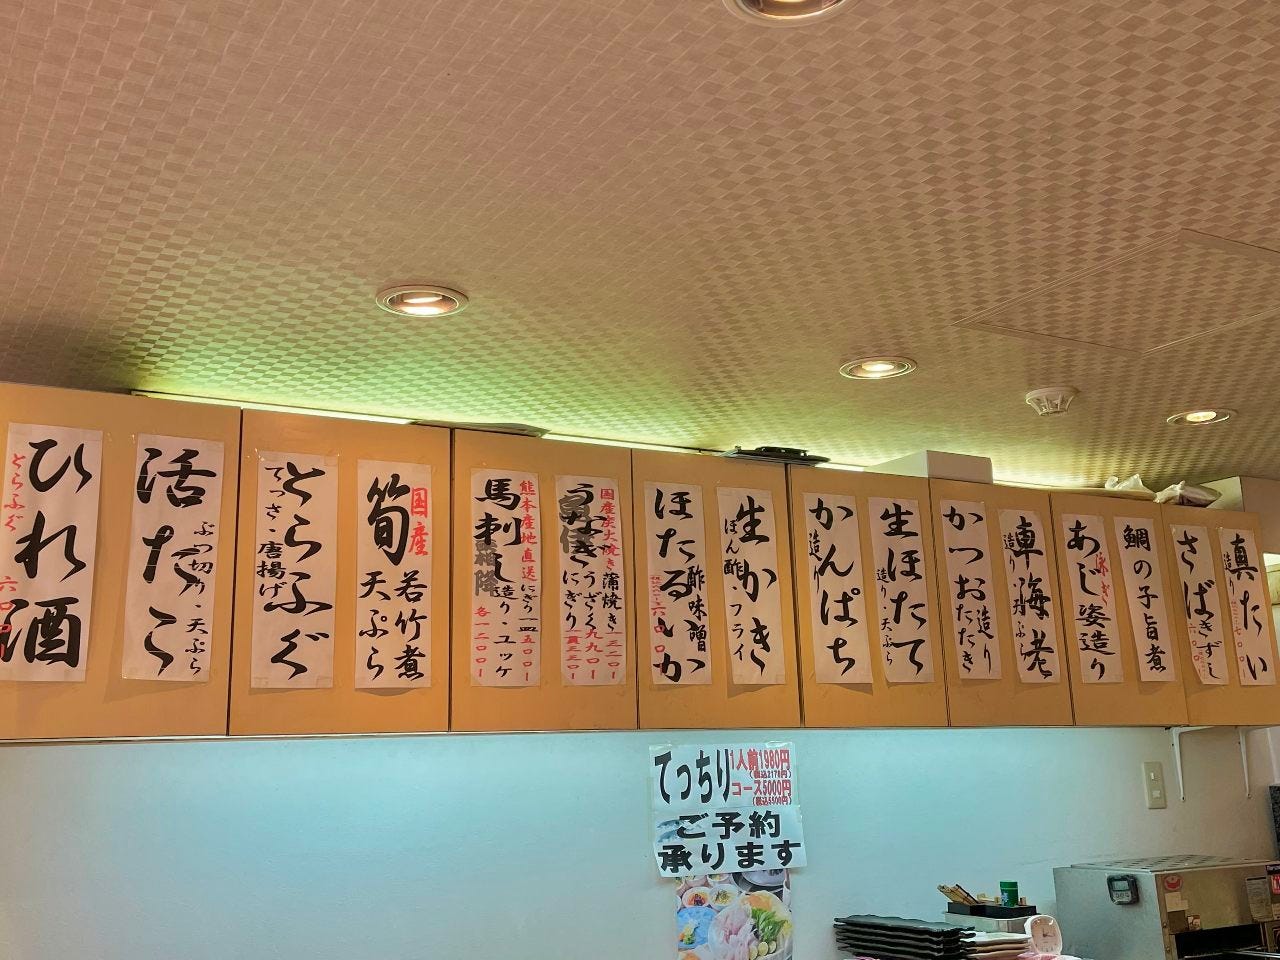 真たい
造り
さばきずし
鯛の子旨煮
あじ姿造り
車海老
造り
天ぷら
かつおたたき
造り
生ほたて
造り・天ぷら
かんぱち
造り
生かき
ぽん酢・フライ
ほたるいか
酢味噌
国産炭火焼き
うなぎ
蒲焼き
うざく九九〇
にぎり
熊本産地直送
馬刺し
霜降
造り・ユッケ
各一二〇〇
国産
筍
若竹煮
天ぷら
とらふぐ
てっさ・唐揚げ
活たこ
ぶつ切り・天ぷら
ひれ酒
とらふぐ
てっちり
1人前1980円
(税込2178円)
コース5000円
(税込5500円)
ご予約
承ります